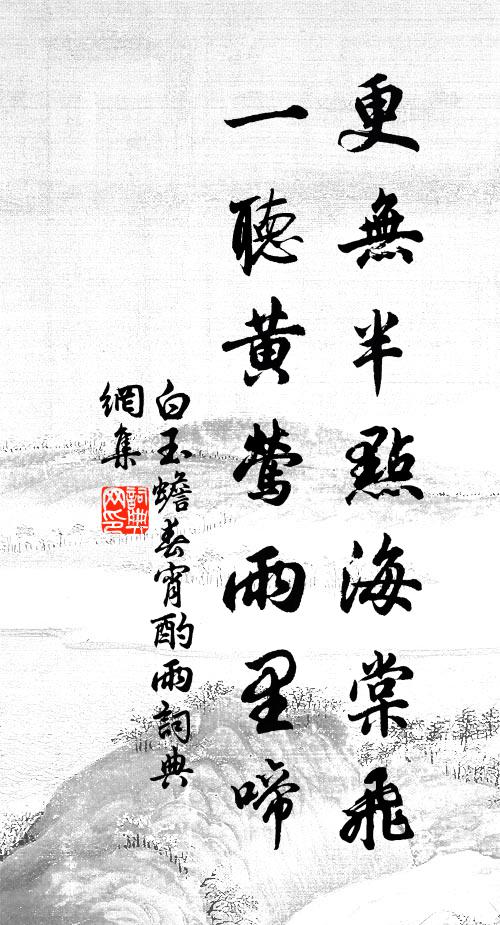 更無半點海棠飛
一聽黃鶯雨里啼
白玉蟾春宵酌雨詞典
網集
詞典
网印